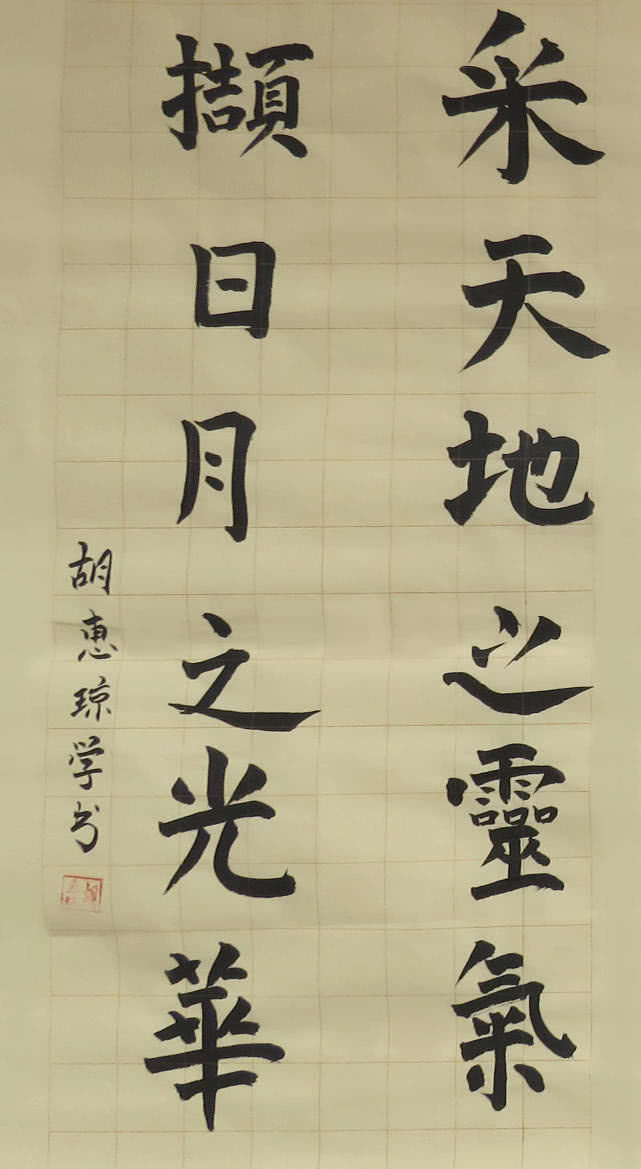 采天地之靈氣
擷日月之光華
胡惠琼学书